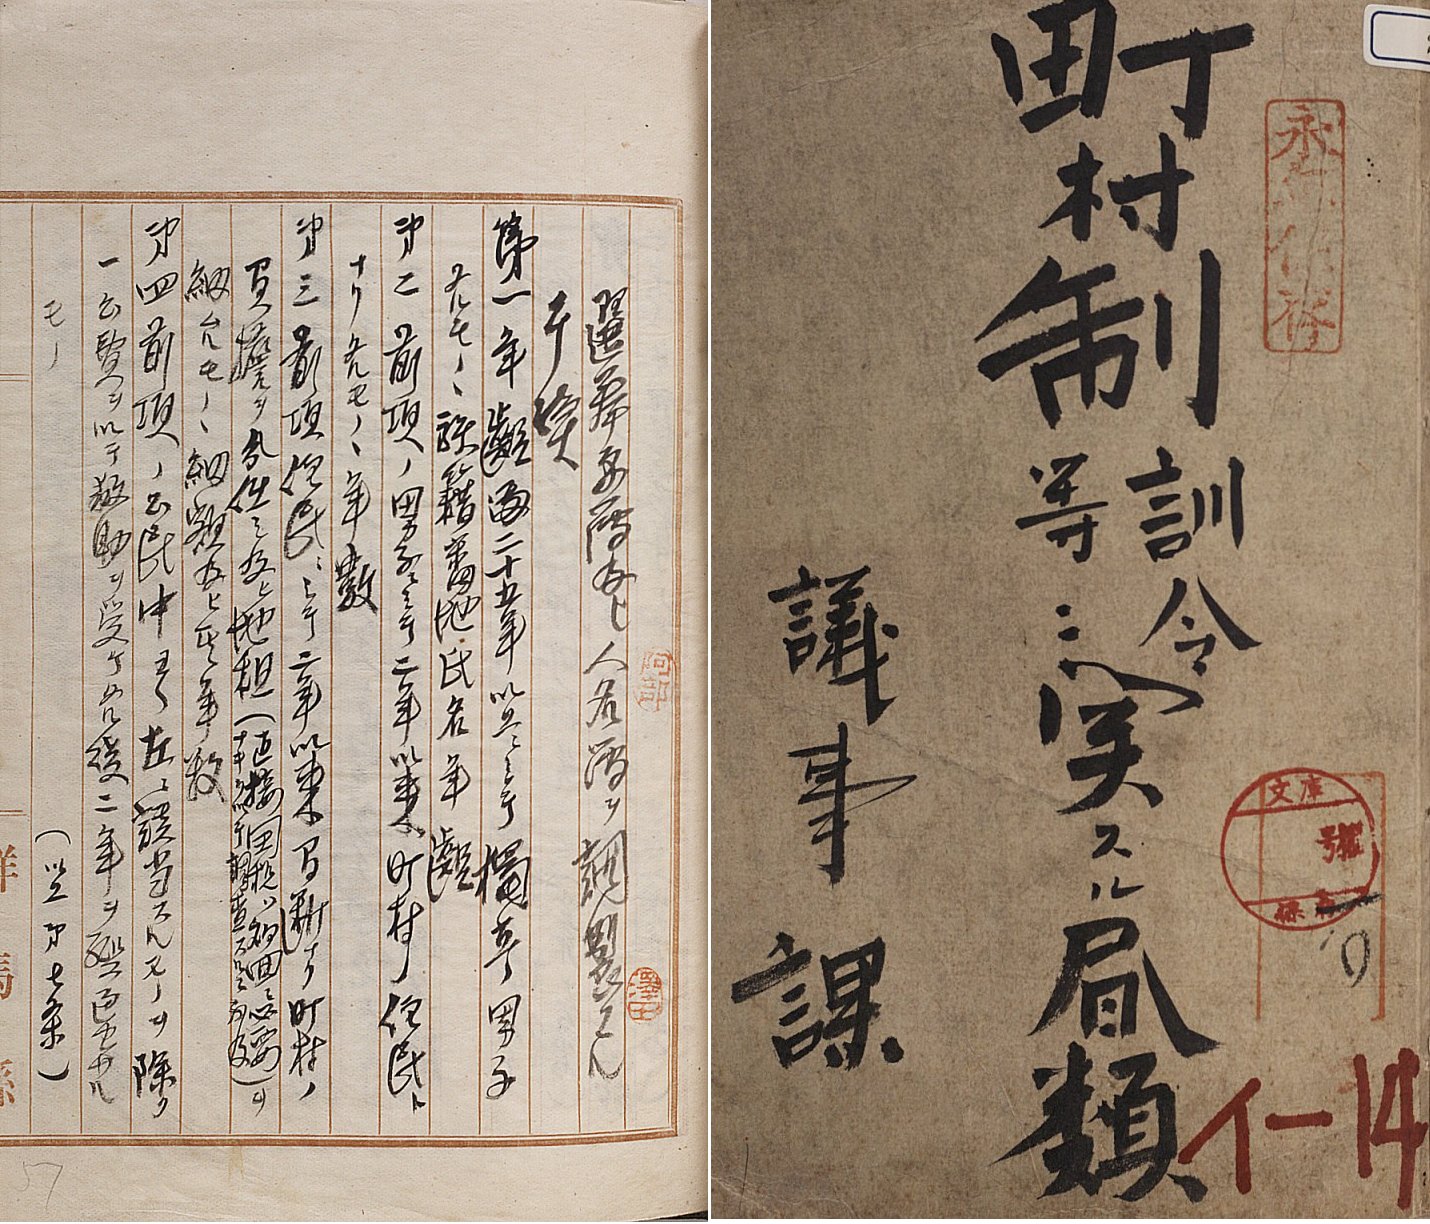 町村制訓令
等ニ関スル書類
議事課
永久保存
文庫
號
イー14
選挙原簿及ヒ人名簿ヲ調製スル
手続
第一 年齢満二十五年以上ニシテ独立ノ男子
タルモノヽ族籍番地氏名年齢
第二 前項ノ男子ニシテ二年以来町村ノ住民ト
ナリタルモノヽ年数
第三 前項住民ニシテ二年以来其町村ノ
負担ヲ分任シ及ヒ地租(直接国税ハ
納ムルモノヽ納額及ヒ其年数
第四 前項ノ公民中ヨリ左ニ該当スルモノヲ除ク
一 公費ヲ以テ救助ヲ受ケタル後二年ヲ経過セサル
モノ
(以上第七条)
阿部
澤田
57